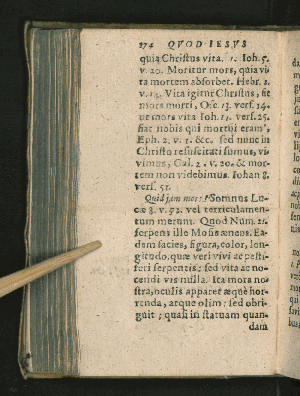 274 QVOD IESVS
quia Christus vita. 1. Ioh. 5.
v. 20. Moritur mors, quia vi-
ta mortem absorbet. Hebr. 2.
v. 14. Vita igitur Christus, fit
mors morti, Osc. 13. vers. 14.
ut mors vita Ioh. 11. vers. 25.
fiat nobis qui mortui eram9,
Eph. 2. v. 5. &c. sed nunc in
Christo resuscitati sumus, vi-
vimus, Gal. 2. v. 20. & mor-
tem non videbimus. Iohan 8.
vers. 51.
Quid jam mors? Somnus Lu-
cæ 8. v. 52. vel terriculamen-
tum merum. Quod Num. 21.
serpens ille Mosis æneus. Ea-
dem facies, figura, color, lon-
gitudo, quæ veri vivi ac pesti-
feri serpentis; sed vita ac no-
cendi vis nulla. Ita mors no-
stra, oculis apparet æque hor-
renda, atque olim; sed obri-
guit; quasi in statuam quan-
dam